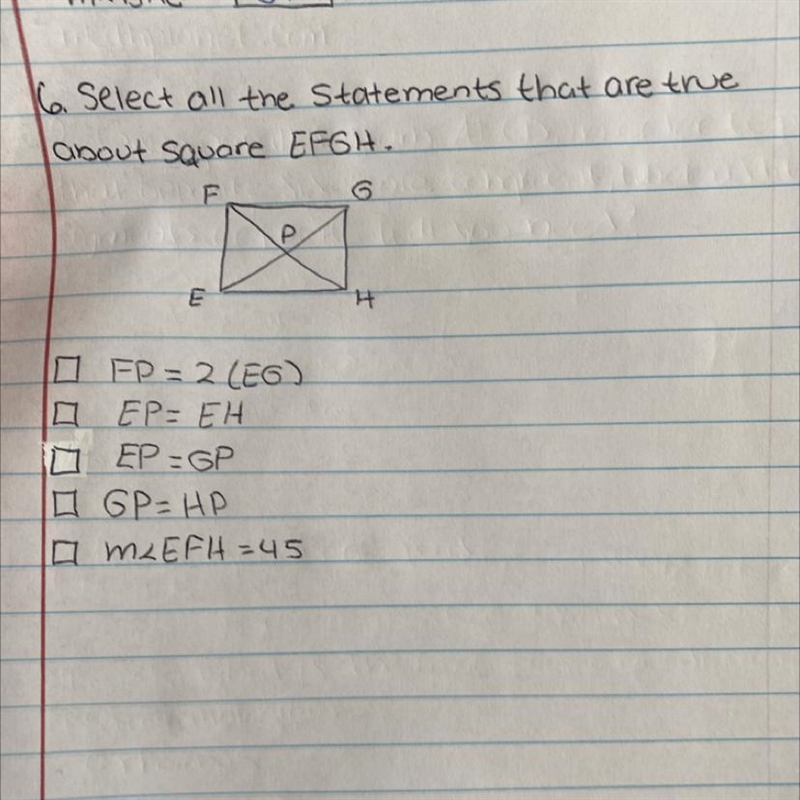 6. Select all the Statements that are true
about square EFGH.
F G
P
E H
FP = 2 (EG)
EP = EH
EP = GP
GP = HP
m∠EFH = 45